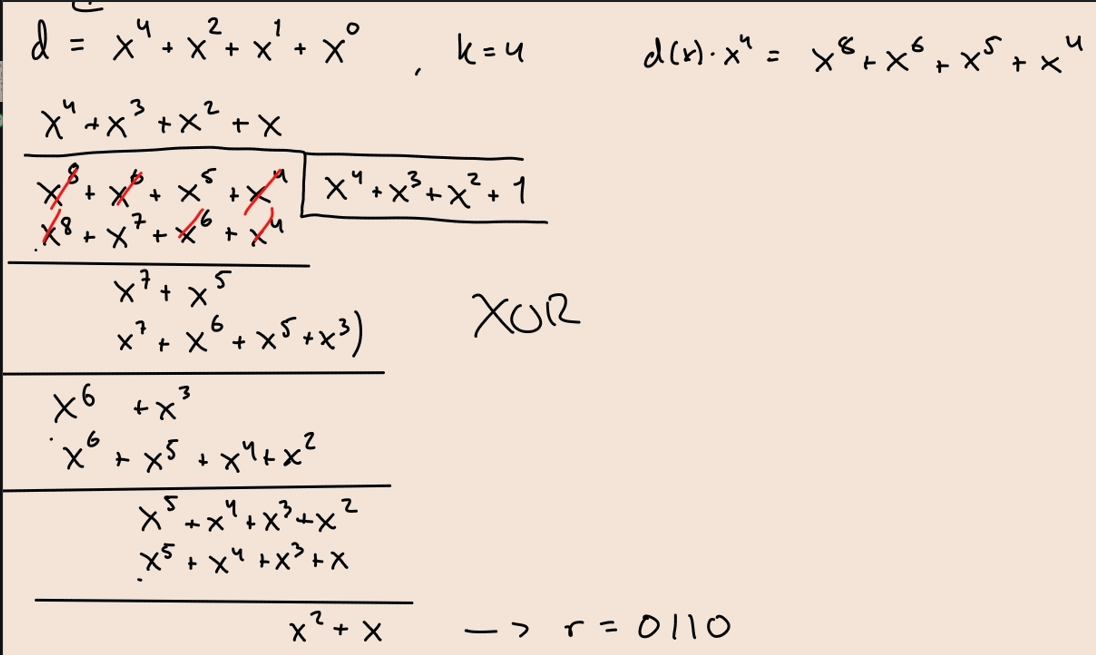 d = x⁴ + x² + x¹ + x⁰ , k = 4 d(x)·x⁴ = x⁸ + x⁶ + x⁵ + x⁴
x⁴ + x³ + x² + x
x⁸ + x⁶ + x⁵ + x⁴ x⁴ + x³ + x² + 1
x⁸ + x⁷ + x⁶ + x⁴
x⁷ + x⁵
XOR
x⁷ + x⁶ + x⁵ + x³)
x⁶ + x³
x⁶ + x⁵ + x⁴ + x²
x⁵ + x⁴ + x³ + x²
x⁵ + x⁴ + x³ + x
x² + x —> r = 0110